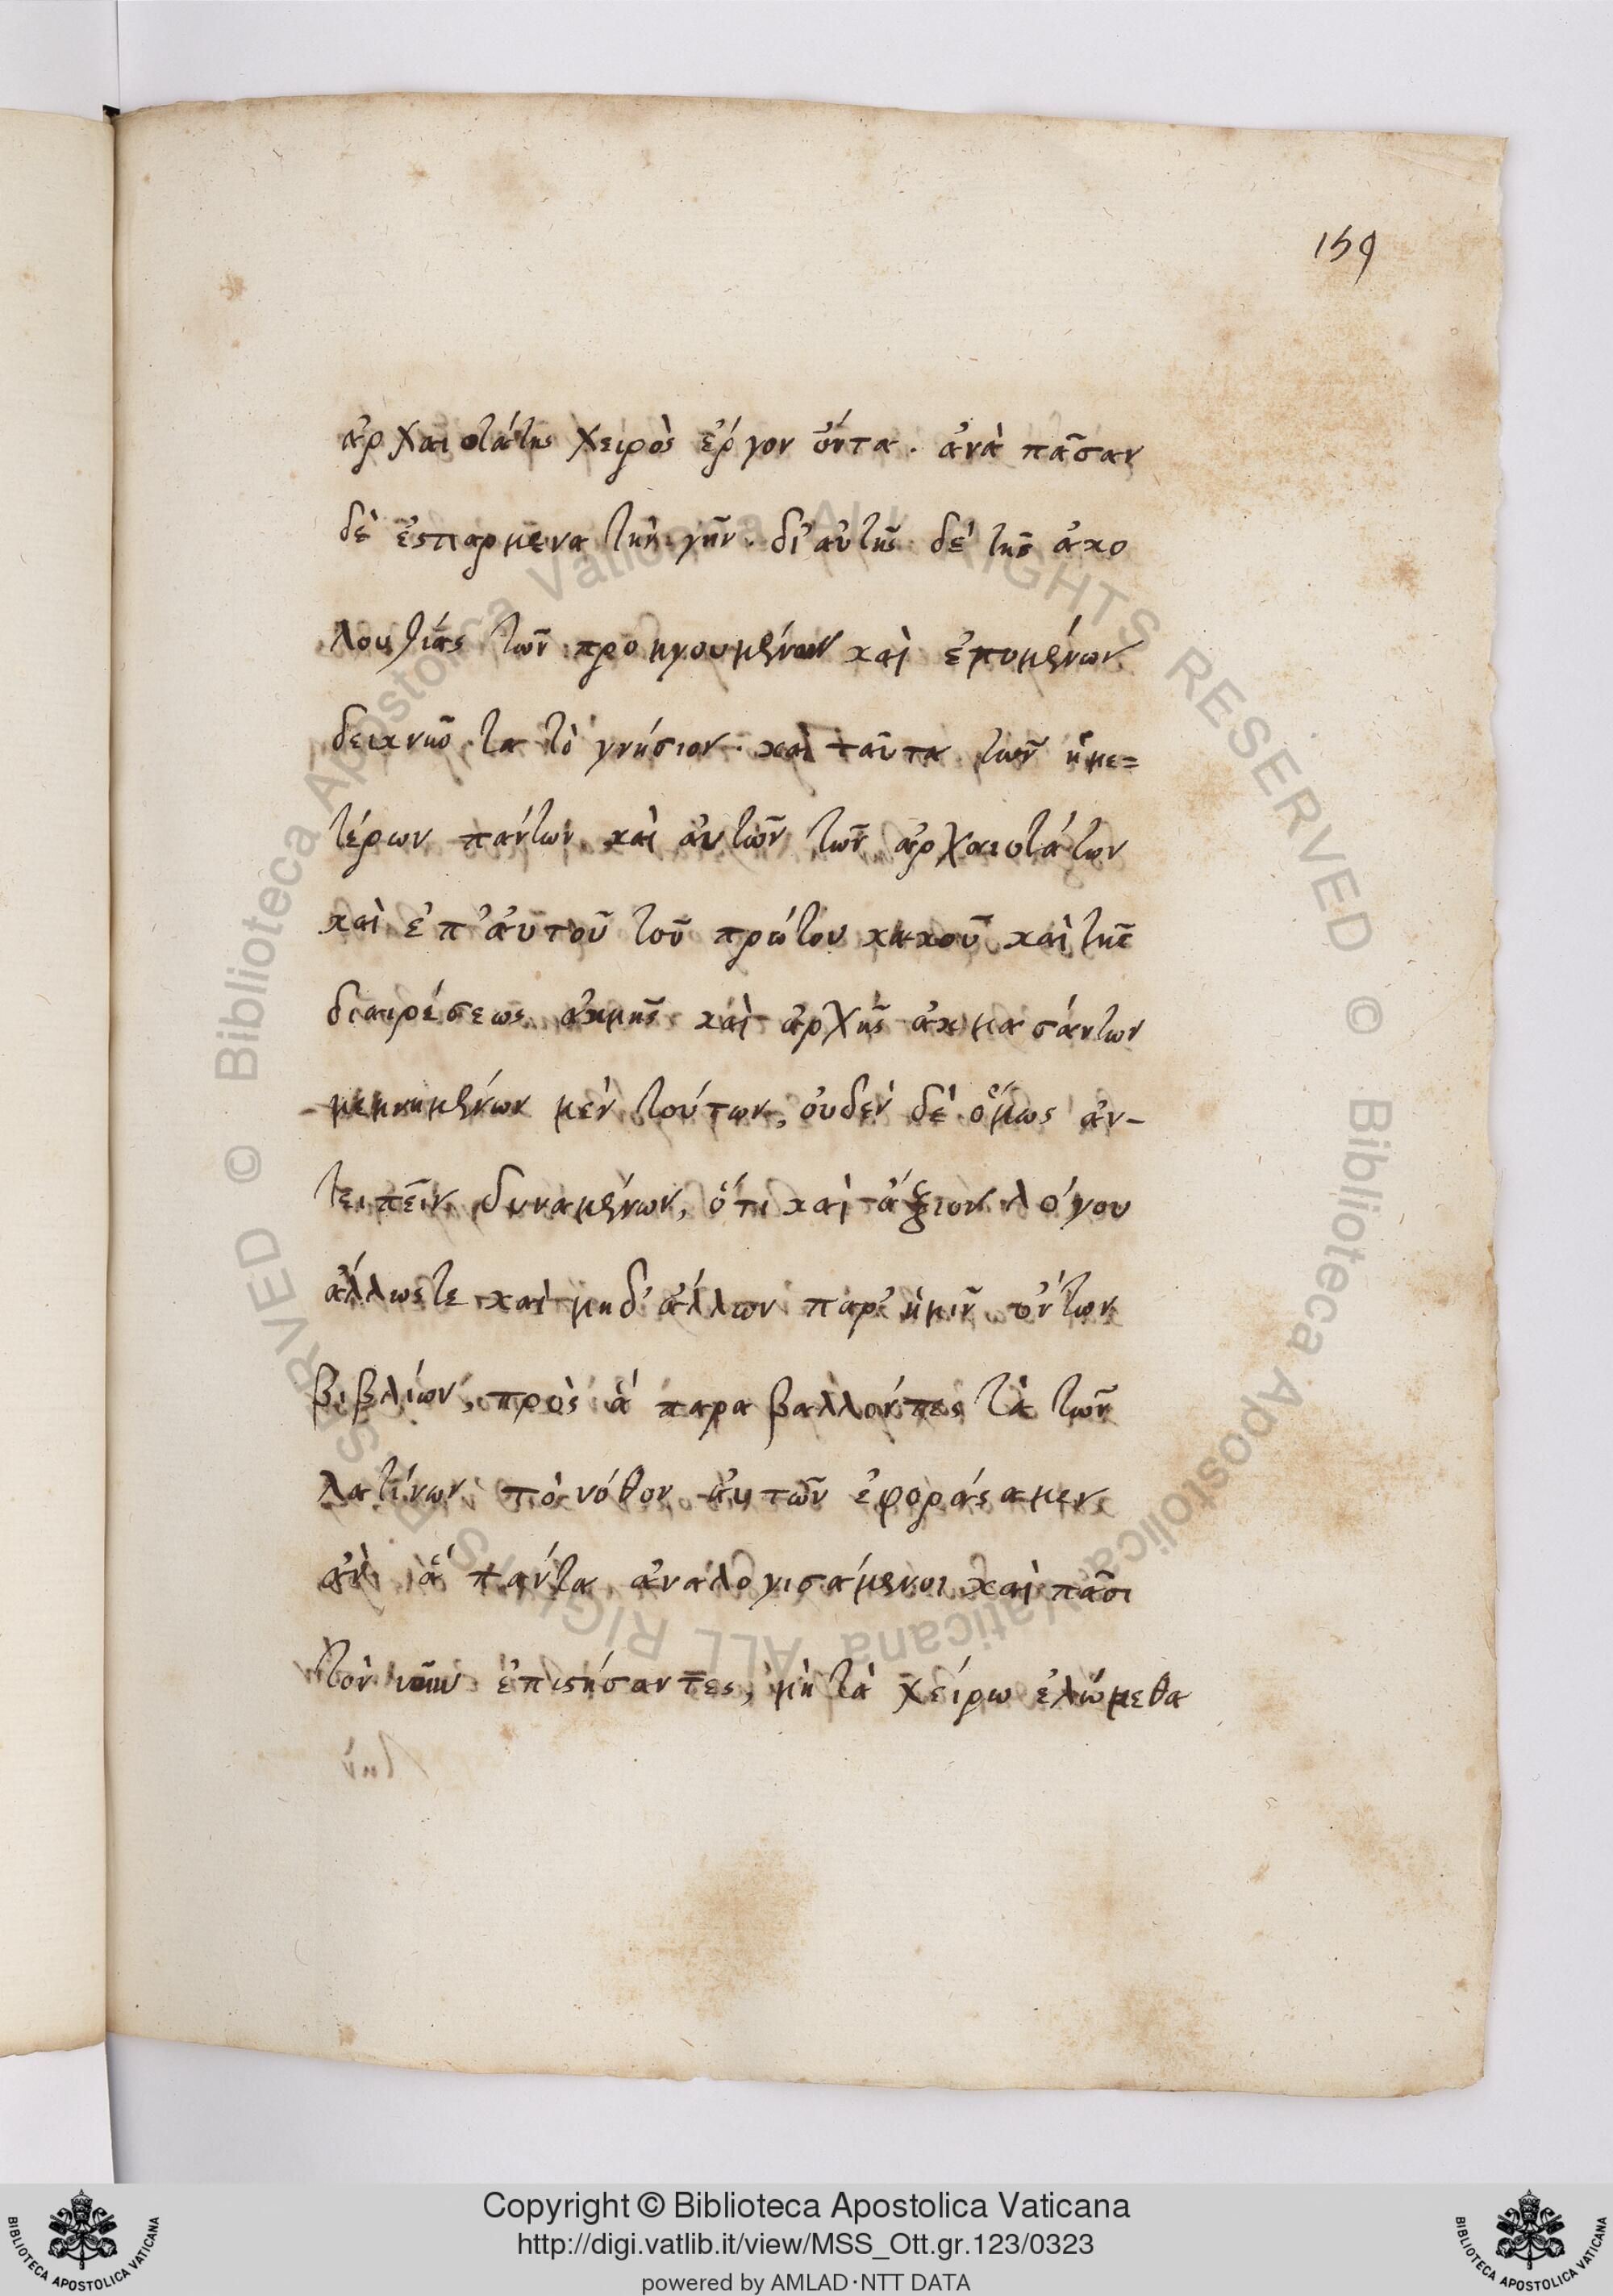 159
ἀρχαιοτάτης χειρὸς ἔργον ὄντα. ἀνὰ πᾶσαν
δὲ ἐσπαρμενα τὴν γῆν. δι' αὐτῆς δὲ τῆς ἀκο
λουθίας τῶν προηγουμένων καὶ ἑπομένων
τα τὸ γνήσιον. καὶ ταῦτα τῶν ἡμε=
τέρων πάντων καὶ αὐτῶν τῶν ἀρχαιοτάτων
καὶ ἐπ' αὐτοῦ τοῦ πρώτου κακοῦ καὶ τῆς
διαιρέσεως ἀκμῆς καὶ ἀρχῆς ἀκμασάντων
μεμνημένων μὲν τούτων, οὐδὲν δὲ ὅμως ἀν-
τειπεῖν δυναμένων, ὅτι καὶ ἄξιον λόγου
ἄλλωςτε καὶ μηδ' ἄλλων παρ' ἡμῖν ὄντων
βιβλίων, πρὸς ἃ παραβαλλόντες τὰ τῶν
λατίνων τὸ νόθον αὐτῶν ἐφοράσαμεν
ἃ πάντα ἀναλογισάμενοι καὶ πᾶσι
τὸν νοῦν ἐπιστήσαντες, μὴ τὰ χείρω ἑλώμεθα
Copyright © Biblioteca Apostolica Vaticana
http://digi.vatlib.it/view/MSS_Ott.gr.123/0323
powered by AMLAD·NTT DATA
BIBLIOTECA APOSTOLICA VATICANA
BIBLIOTECA APOSTOLICA VATICANA
© Biblioteca Apostolica Vaticana ALL RIGHTS RESERVED
© Biblioteca Apostolica Vaticana ALL RIGHTS RESERVED